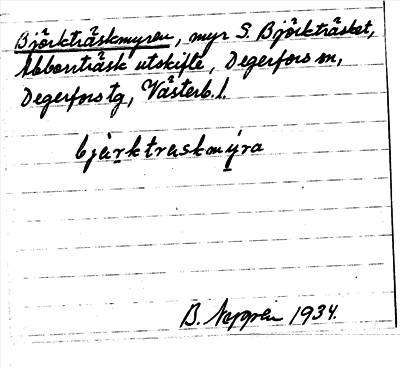 Björkträskmyren, myr S. Björkträsket,
Abborrträsk utskifte, Degerfors sn,
Degerfors tg, Västerb. l.
bjärktraskmýra
B. Nygren 1934.